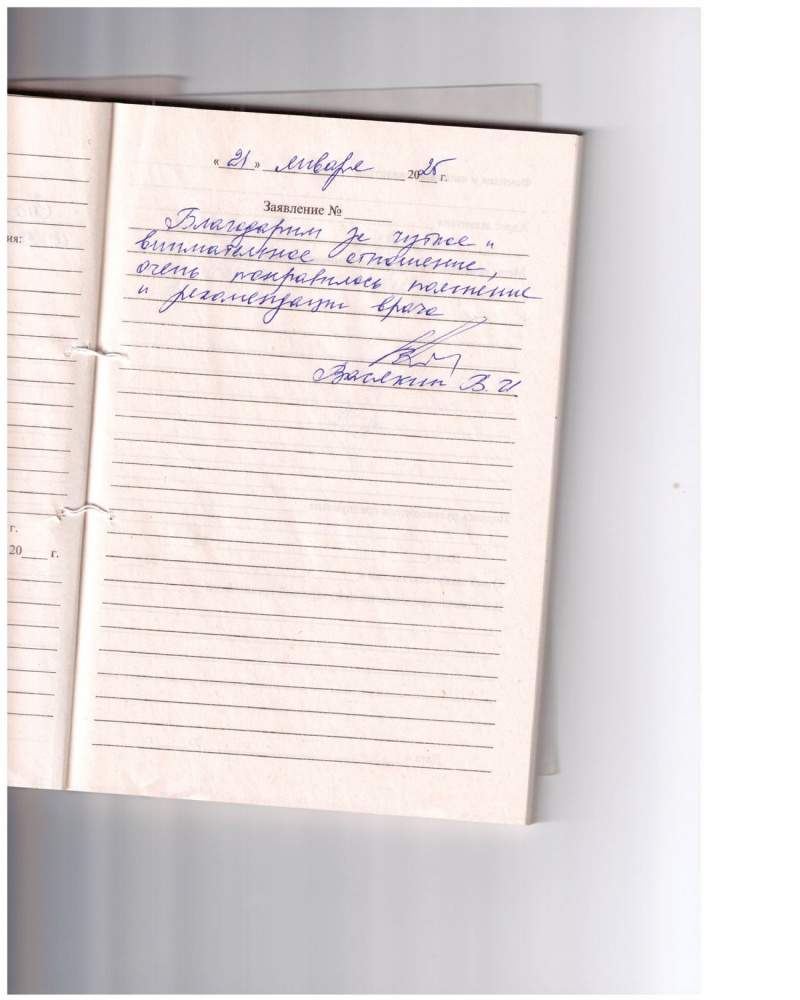 « 21 » января 2025 г.
Заявление №
Благодарим за чуткое и
внимательное отношение,
очень понравилось пояснение
и рекомендации врача
Васякин В. И
ия:
г.
20 г.